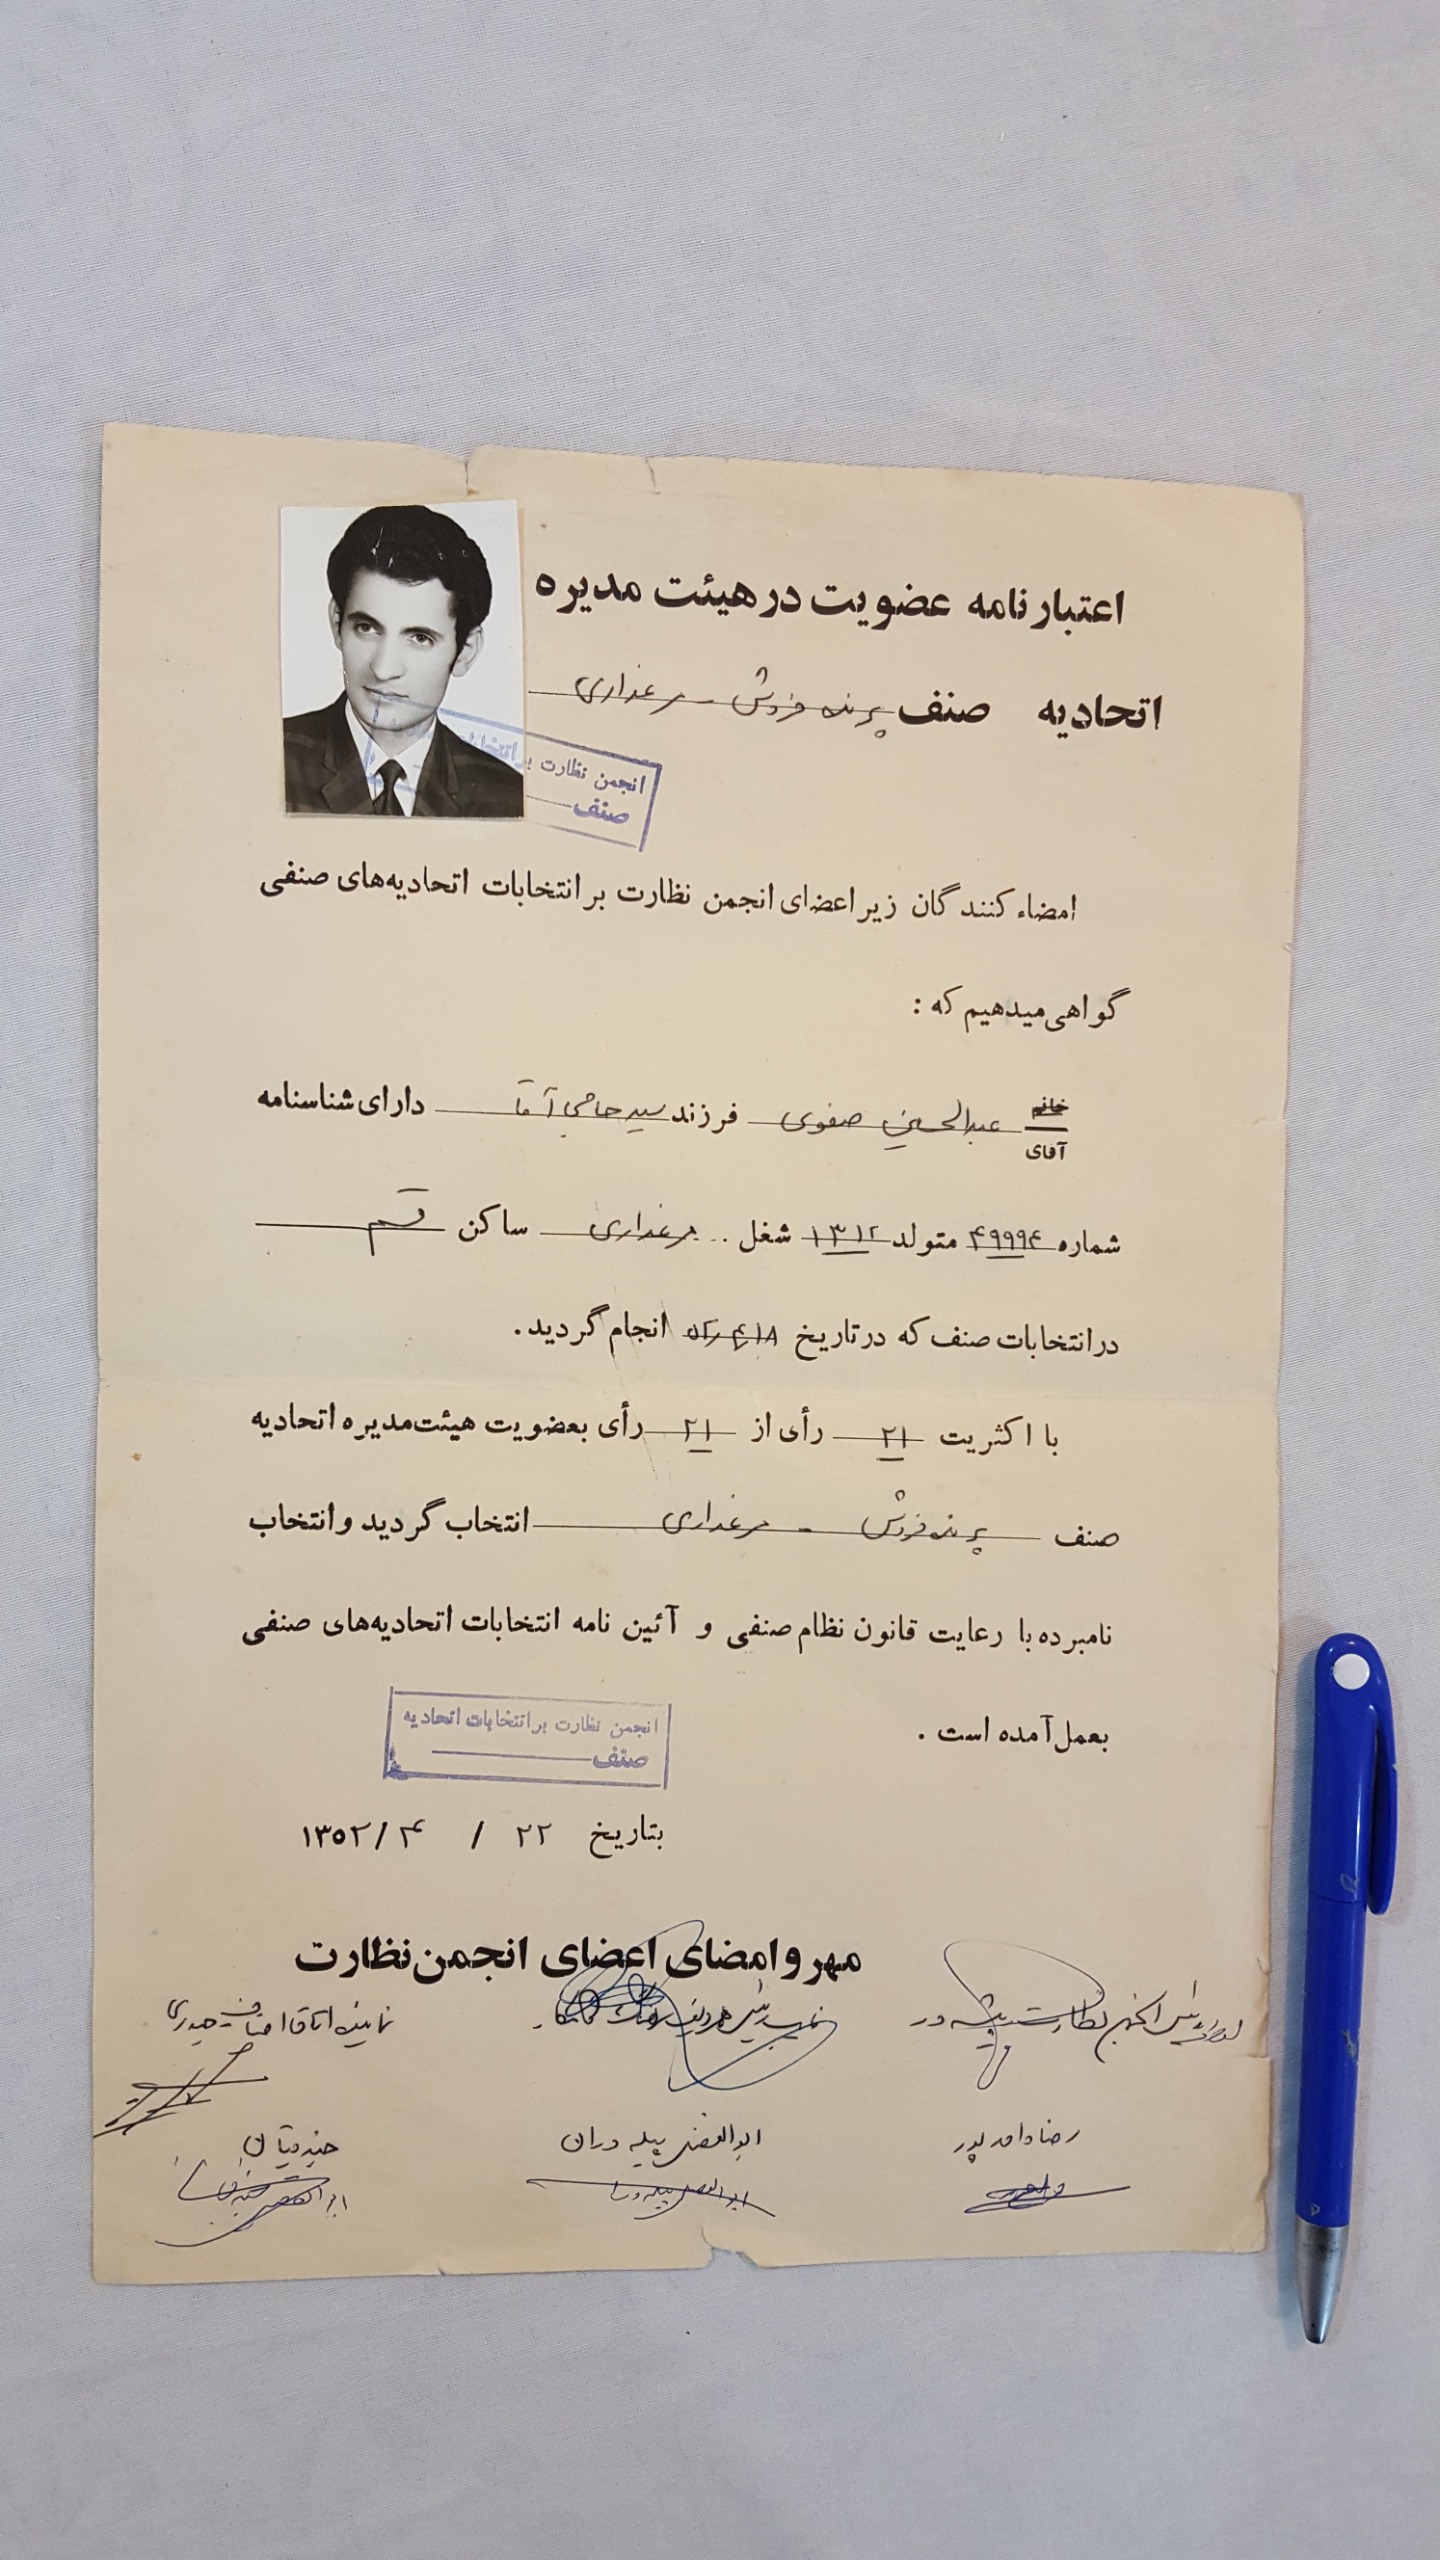 اعتبارنامه عضویت در هیئت مدیره
اتحادیه صنف پرنده فروش - مرغداری
انجمن نظارت بر انتخابات
صنف
امضاء کنندگان زیر اعضای انجمن نظارت بر انتخابات اتحادیه‌های صنفی
گواهی میدهیم که :
خانم
آقای
عبدالحسین صفوی فرزند سید حاجی آقا دارای شناسنامه
شماره ۴۹۹۹۴ متولد ۱۳۱۲ شغل .. مرغداری ساکن قم
در انتخابات صنف که در تاریخ ۵۲/۴/۱۸ انجام گردید .
با اکثریت ۲۱ رأی از ۲۱ رأی بعضویت هیئت مدیره اتحادیه
صنف پرنده فروش - مرغداری انتخاب گردید و انتخاب
نامبرده با رعایت قانون نظام صنفی و آئین نامه انتخابات اتحادیه‌های صنفی
بعمل آمده است .
انجمن نظارت بر انتخابات اتحادیه
صنف
بتاریخ ۲۲ / ۴ / ۱۳۵۲
مهر و امضای اعضای انجمن نظارت
رئیس انجمن نظارت پیشه ور
نایب رئیس
نماینده اتاق اصناف حیدری
رضا
ابوالفضل پیله وران
ابوالفضل